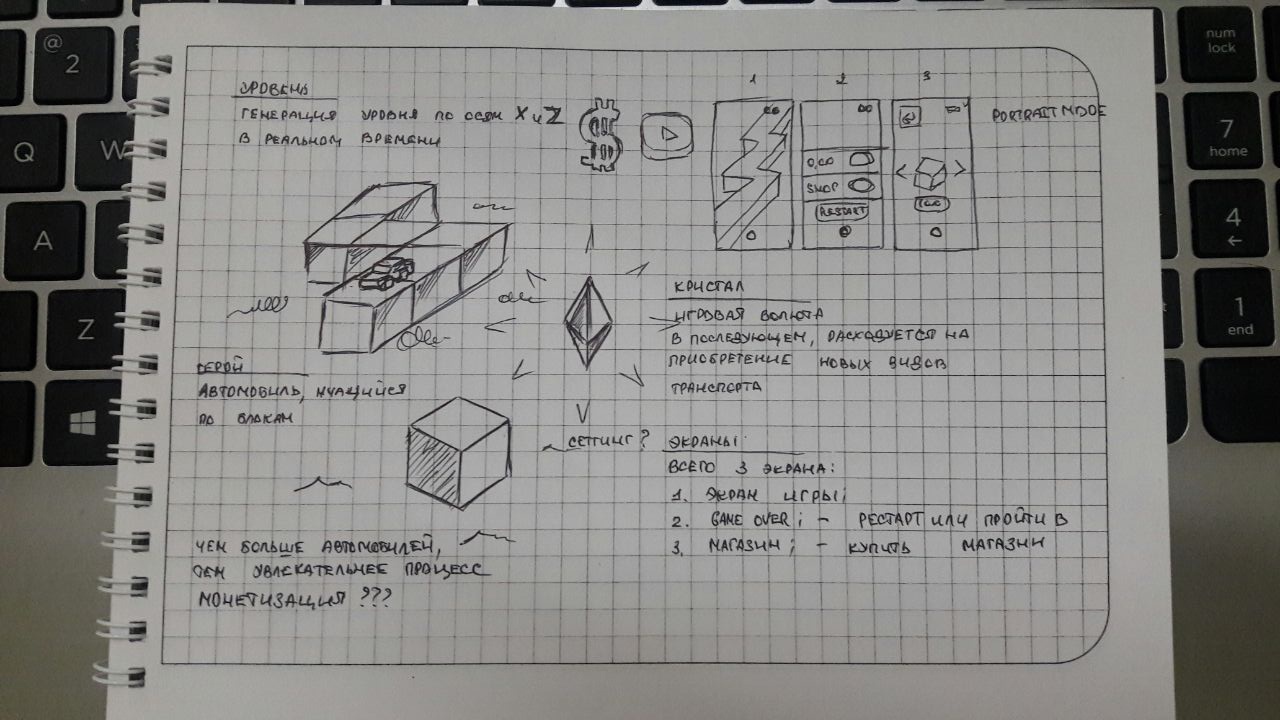 УРОВЕНЬ
ГЕНЕРАЦИЯ УРОВНЯ ПО ОСЯМ X и Z
В РЕАЛЬНОМ ВРЕМЕНИ
$
1 2 3
PORTRAIT MODE
0,00
SHOP
RESTART
< >
КРИСТАЛ
ИГРОВАЯ ВОЛЮТА
В ПОСЛЕДУЮЩЕМ, РАСХОДУЕТСЯ НА
ПРИОБРЕТЕНИЕ НОВЫХ ВИДОВ
ТРАНСПОРТА
ГЕРОЙ
АВТОМОБИЛЬ, МЧАЩИЙСЯ
ПО БЛОКАМ
СЕТТИНГ?
ЭКРАНЫ:
ВСЕГО 3 ЭКРАНА:
1. ЭКРАН ИГРЫ;
2. GAME OVER; - РЕСТАРТ ИЛИ ПРОЙТИ В
3. МАГАЗИН; - КУПИТЬ МАГАЗИН
ЧЕМ БОЛЬШЕ АВТОМОБИЛЕЙ,
ТЕМ УВЛЕКАТЕЛЬНЕЕ ПРОЦЕСС
МОНЕТИЗАЦИЯ ???
@
2
Q
W
A
Z
num
lock
7
home
4
←
1
end